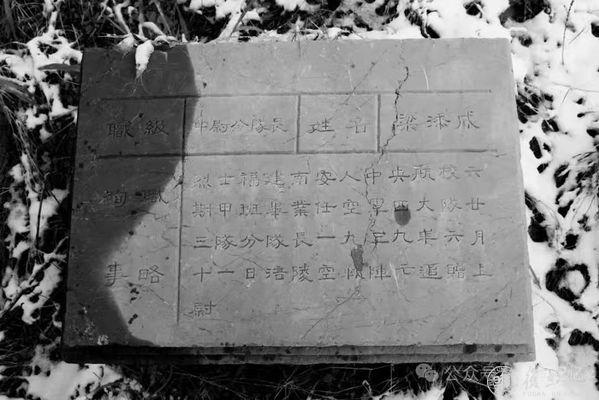 職級 中尉分隊長 姓名 梁添成
殉職事略
烈士福建南安人中央航校六
期甲班畢業任空軍四大隊廿
三隊分隊長一九三九年六月
十一日涪陵空戰陣亡追贈上
尉
公众